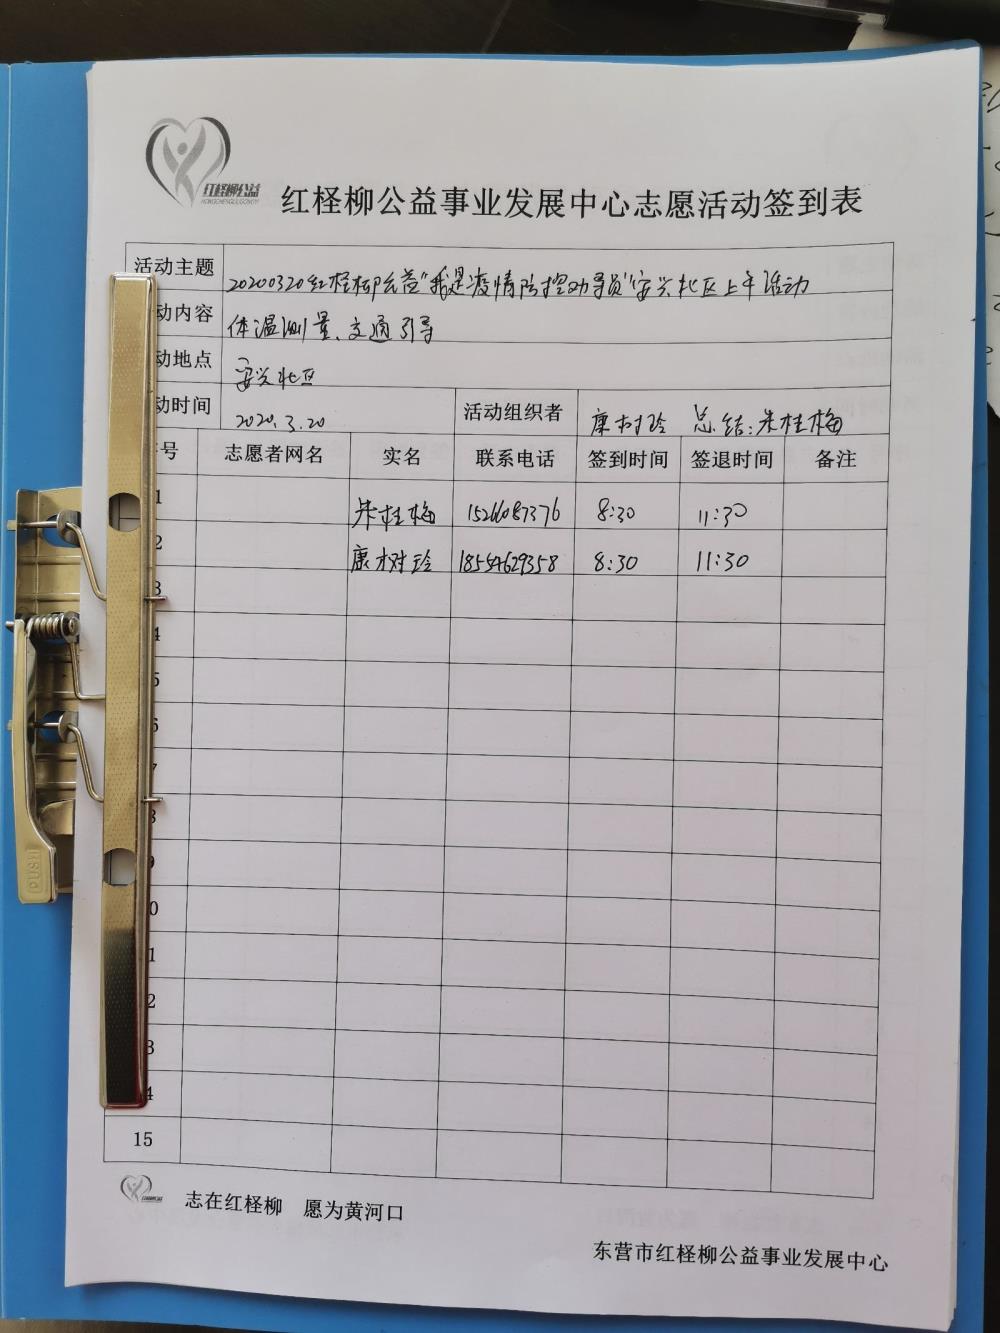 红柽柳公益
HONGCHENGLIUGONGYI
红柽柳公益事业发展中心志愿活动签到表
活动主题 20200320红柽柳公益"我是疫情防控劝导员"安兴北区上午活动
动内容 体温测量、交通引导
动地点 安兴北区
动时间 2020.3.20 活动组织者 康树玲 总结:朱桂梅
号 志愿者网名 实名 联系电话 签到时间 签退时间 备注
1 朱桂梅 15266087376 8:30 11:30
2 康树玲 18554629358 8:30 11:30
3
4
5
6
7
8
9
0
1
2
3
4
15
PUSH
志在红柽柳 愿为黄河口
东营市红柽柳公益事业发展中心